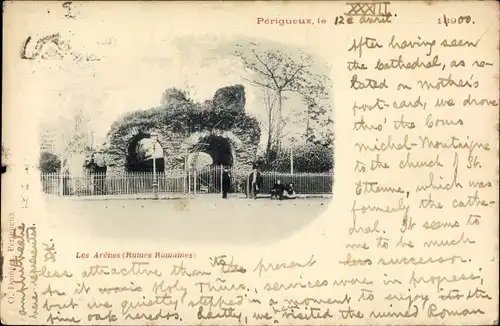 XXXII
Périgueux, le 12 avril 1900.
After having seen
the Cathedral, as re-
lated on mother's
post-card, we drove
thro' the Cours
Michel-Montaigne
to the church of St.
Etienne, which was
formerly the cathe-
dral. It seems to
me to be much
less attractive than its present successor.
As it was Holy Thurs., services were in progress,
but we quietly stepped in a moment to enjoy its
fine oak reredos. Lastly, we visited the ruined Roman
amphitheatre
here represented.
Les Arènes (Ruines Romaines)
O. Périgueux